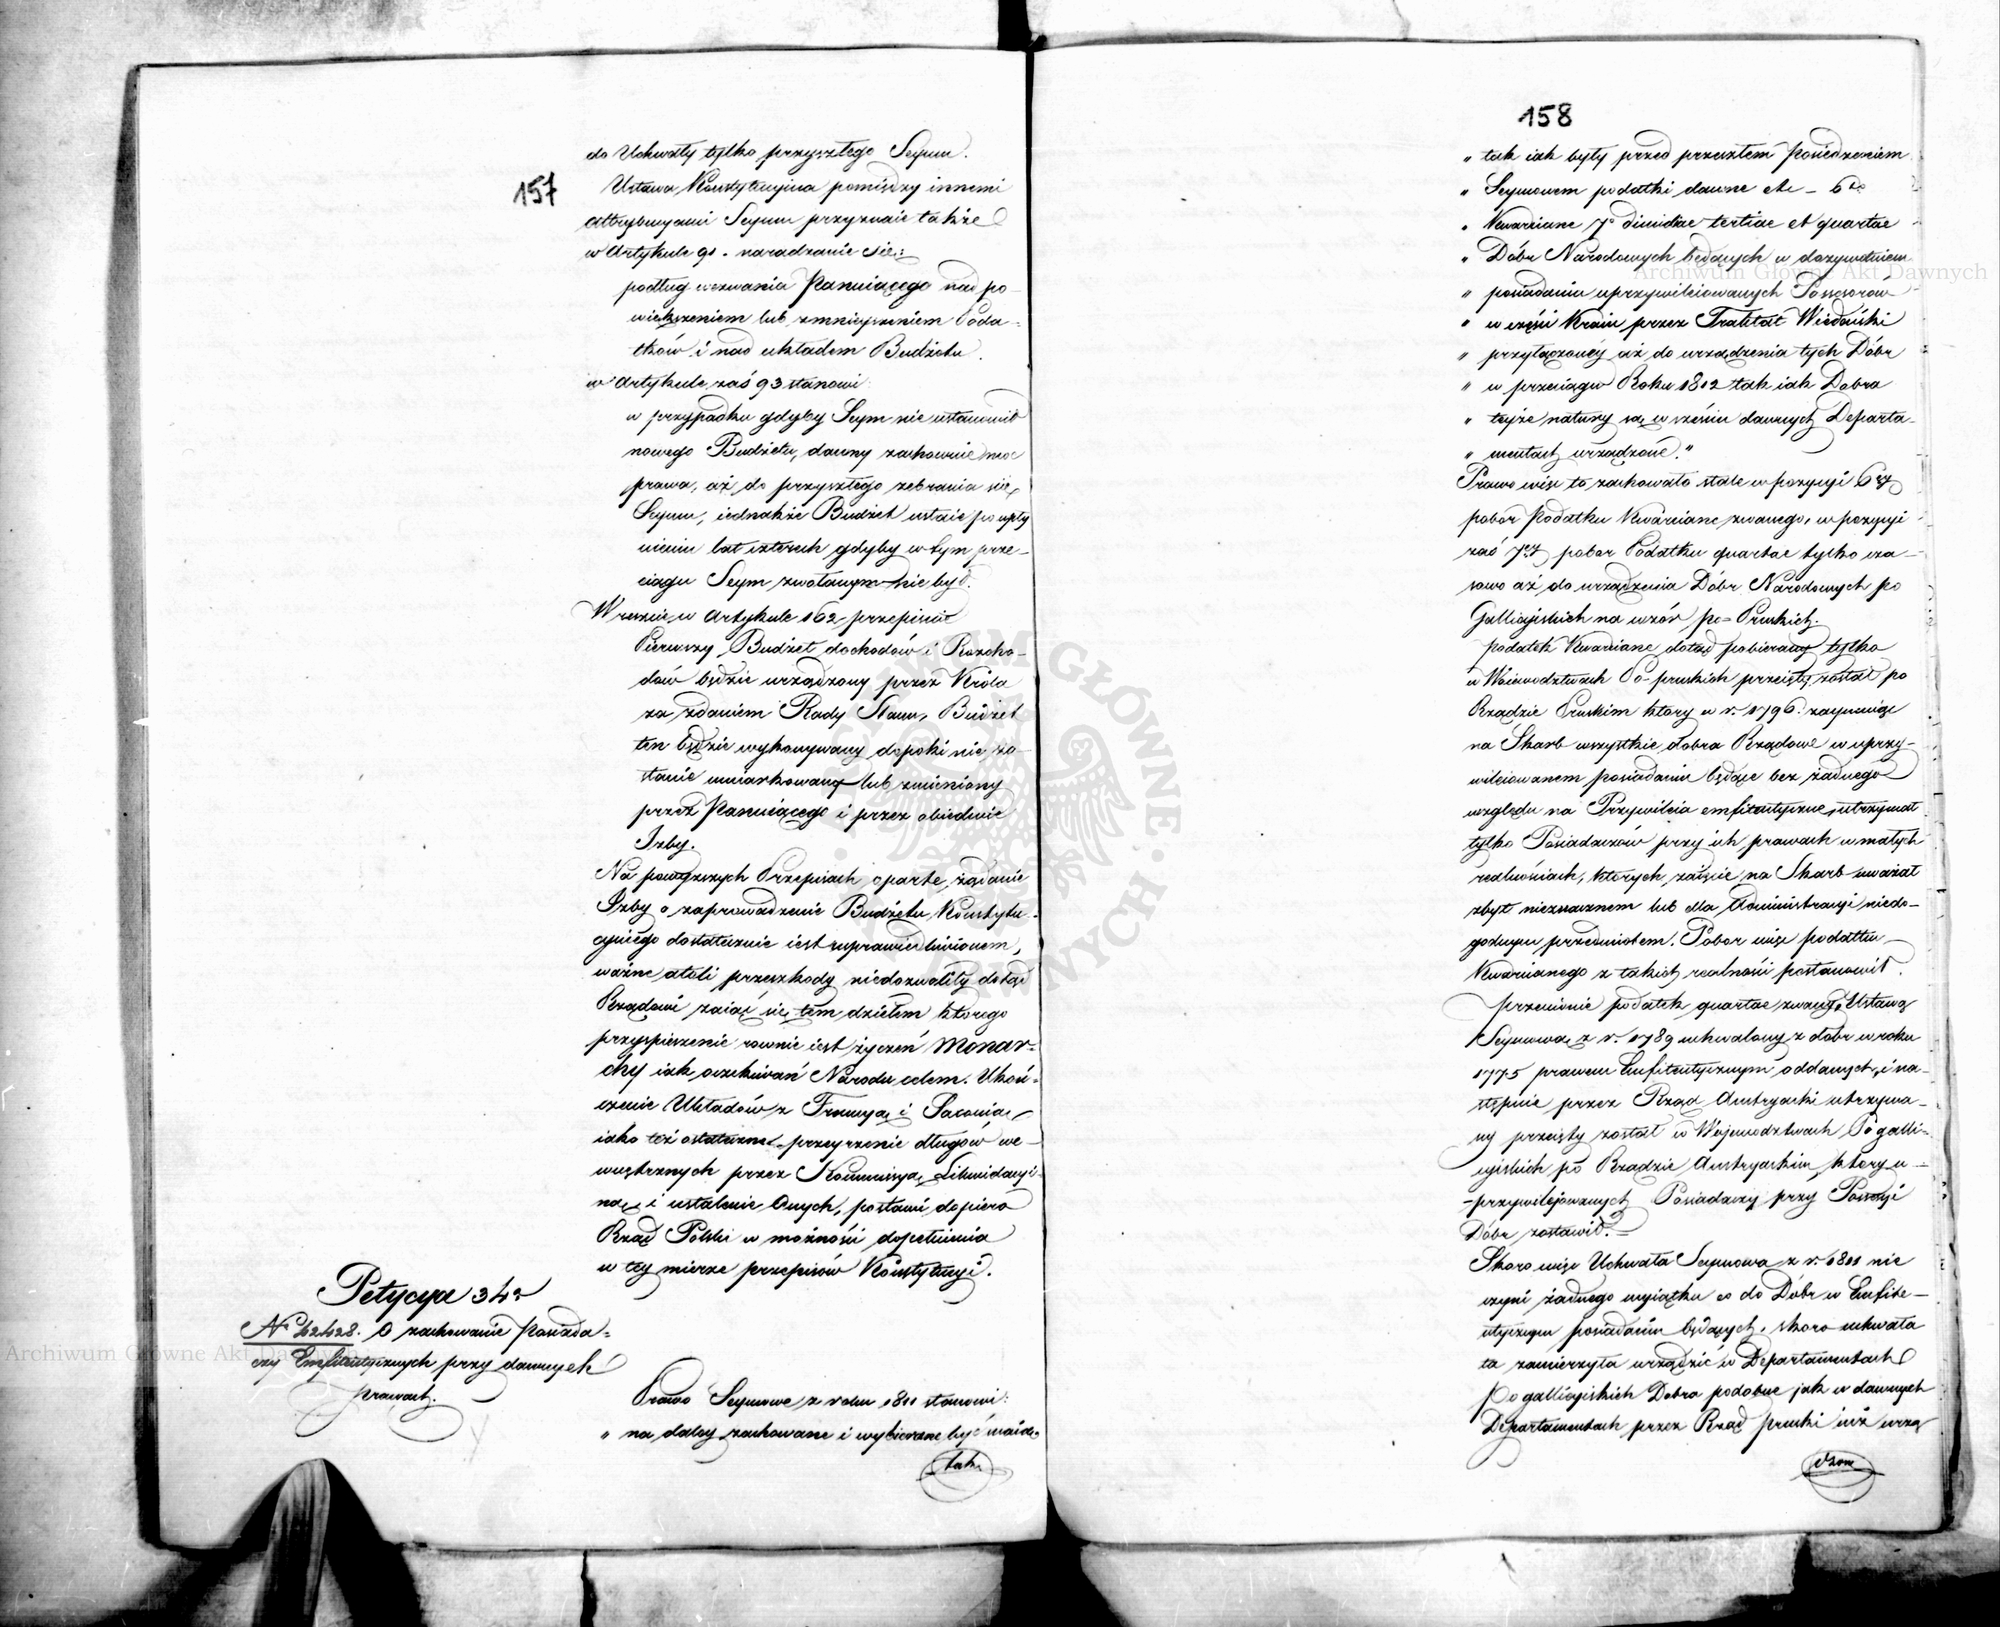 157
do Uchwały tylko przyszłego Seymu.
Ustawa Konstytucyina pomiędzy innemi
attrybucyami Seymu przyznaie także
w Artykule 91. naradzanie się:
podług wezwania Panuiącego nad po-
większeniem lub zmnieyszeniem Poda-
tków i nad układem Budżetu.
w Artykule zaś 93 stanowi:
w przypadku gdyby Seym nie ustanowił
nowego Budżetu, dawny zachowuie moc
prawa, aż do przyszłego zebrania się
Seymu, iednakże Budżet ustaie po upły
nieniu lat czterech gdyby w tym prze-
ciągu Seym zwołanym nie był.
Wreszcie w Artykule 162 przepisuie
Pierwszy Budżet dochodów i Rozcho-
dów będzie urządzony przez Króla
za zdaniem Rady Stanu, Budżet
ten będzie wykonywany dopóki nie zo
stanie umiarkowany lub zmieniony
przez Panuiącego i przez obiedwie
Izby.
Na powyższych Przepisach oparte żądanie
Izby o zaprowadzenie Budżetu Konstytu-
cyinego dostatecznie iest usprawiedliwionem,
ważne atoli przeszkody niedozwoliły dotąd
Rządowi zaiąć się tem dziełem którego
przyspieszenie rownie iest życzeń Monar-
chy iak oczekiwań Narodu celem. Ukoń-
czenie Układów z Francyą i Saxonią,
iako też ostateczne przeyrzenie długów we-
wnętrznych przez Kommissyą Likwidacyi-
ną i ustalenie Onych, postawi dopiero
Rząd Polski w możności dopełnienia
w tey mierze przepisów Konstytucyi.
Petycya 34a
No 42428. O zachowanie Posiada-
czy Emfiteutycznych przy dawnych
prawach.
Prawo Seymowe z roku 1811 stanowi:
" na daley zachowane i wybierane być maią
tak
158
" tak iak były przed przeszłem Posiedzeniem
" Seymowem podatki dawne etc - 6to
" Kwarciane 7o dimidiae tertiae et quartae
" Dóbr Narodowych będących w dożywotniem
" posiadaniu uprzywileiowanych Possessorów
" w części Kraiu przez Traktat Wiedeński
" przyłączoney aż do urządzenia tych Dóbr
" w przeciągu Roku 1812 tak iak Dobra
" teyże natury są w sześciu dawnych Departa-
" mentach urządzone."
Prawo więc to zachowało stale w pozycyi 6ey
pobór Podatku Kwarciane zwanego, w pozycyi
zaś 7ey pobor Podatku quartae tylko cza-
sowo aż do urządzenia Dóbr Narodowych po
Galliciyskich na wzór po-Pruskich.
Podatek Kwarciane dotąd pobierany tylko
w Woiewodztwach Po-pruskich przeięty został po
Rządzie Pruskim ktory w r. 1796. zaymuiąc
na Skarb wszystkie dobra Rządowe w uprzy-
wileiowanem posiadaniu będące bez żadnego
względu na Przywileia emfiteutyczne, utrzymał
tylko Posiadaczów przy ich prawach w małych
realnościach, których zaięcie na Skarb uważał
zbyt nieznacznem lub dla Administracyi niedo-
godnym przedmiotem. Pobor więc podatku
Kwarcianego z takich realności postanowił.
Przeciwnie podatek quartae zwany Ustawą
Seymową z r. 1789 uchwalony z dóbr w roku
1775 prawem Emfiteutycznym oddanych, i na-
stępnie przez Rząd Austryacki utrzyma-
ny przeięty został w Woiewodztwach Pogalli-
cyiskich po Rządzie Austryackim, ktory u-
-przywilejowanych Posiadaczy przy Possesyi
Dóbr zostawił.
Skoro więc Uchwała Seymowa z r. 1811 nie
czyni żadnego wyiątku co do Dóbr w Emfite-
utycznym posiadaniu będących, skoro uchwała
ta zamierzyła urządzić w Departamentach
Po galliciyskich Dobra podobne jak w dawnych
Departamentach przez Rząd pruski iuż urzą
dzone